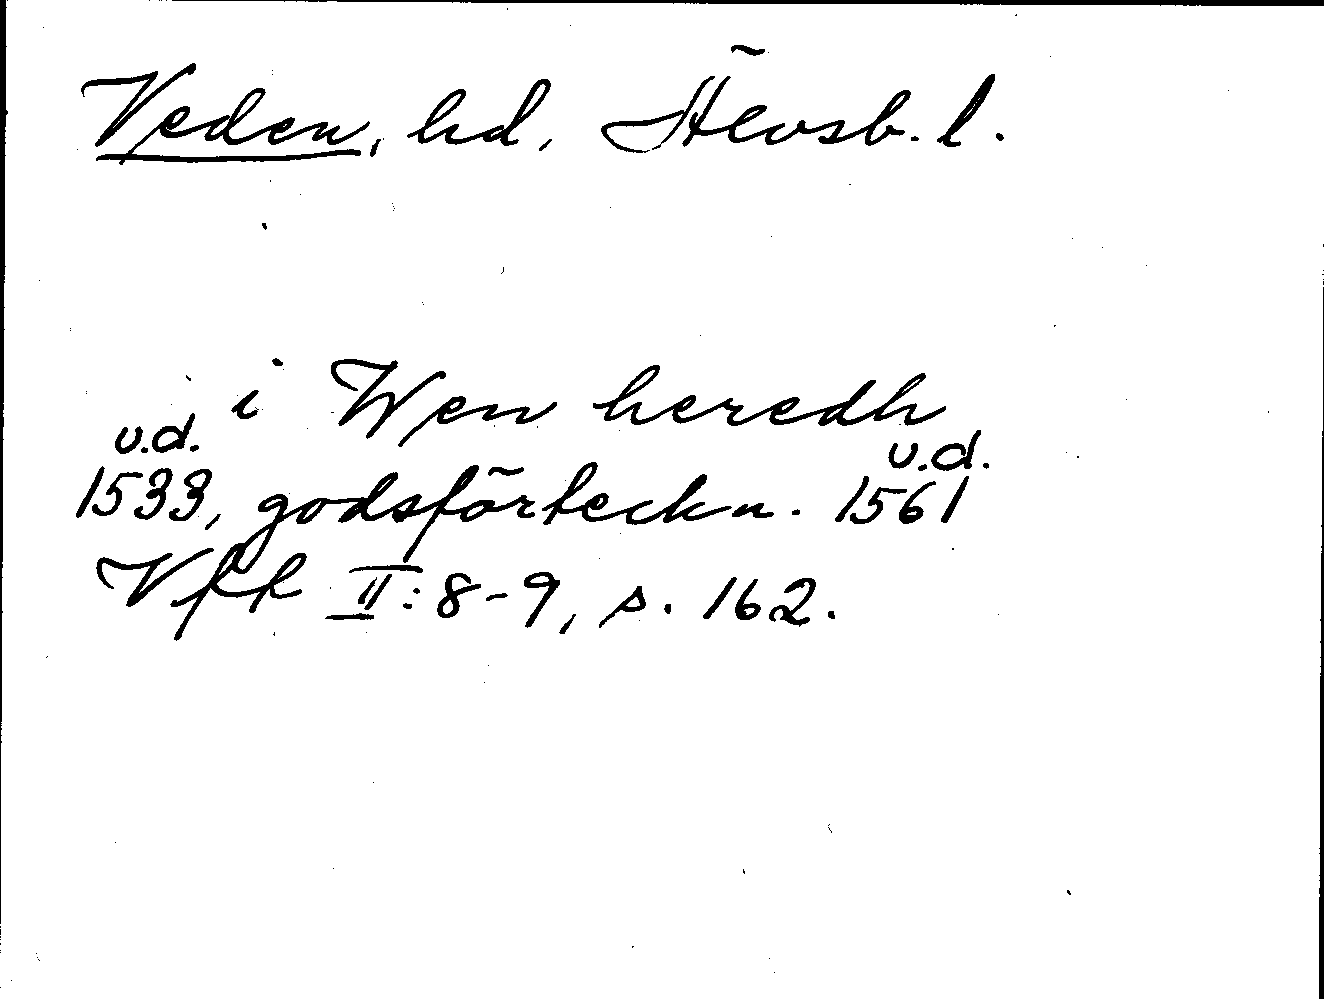 Veden, hd, Älvsb. l.
i Wen heredh
u.d. u.d.
1533, godsförteckn. 1561
Vfk II:8-9, s. 162.